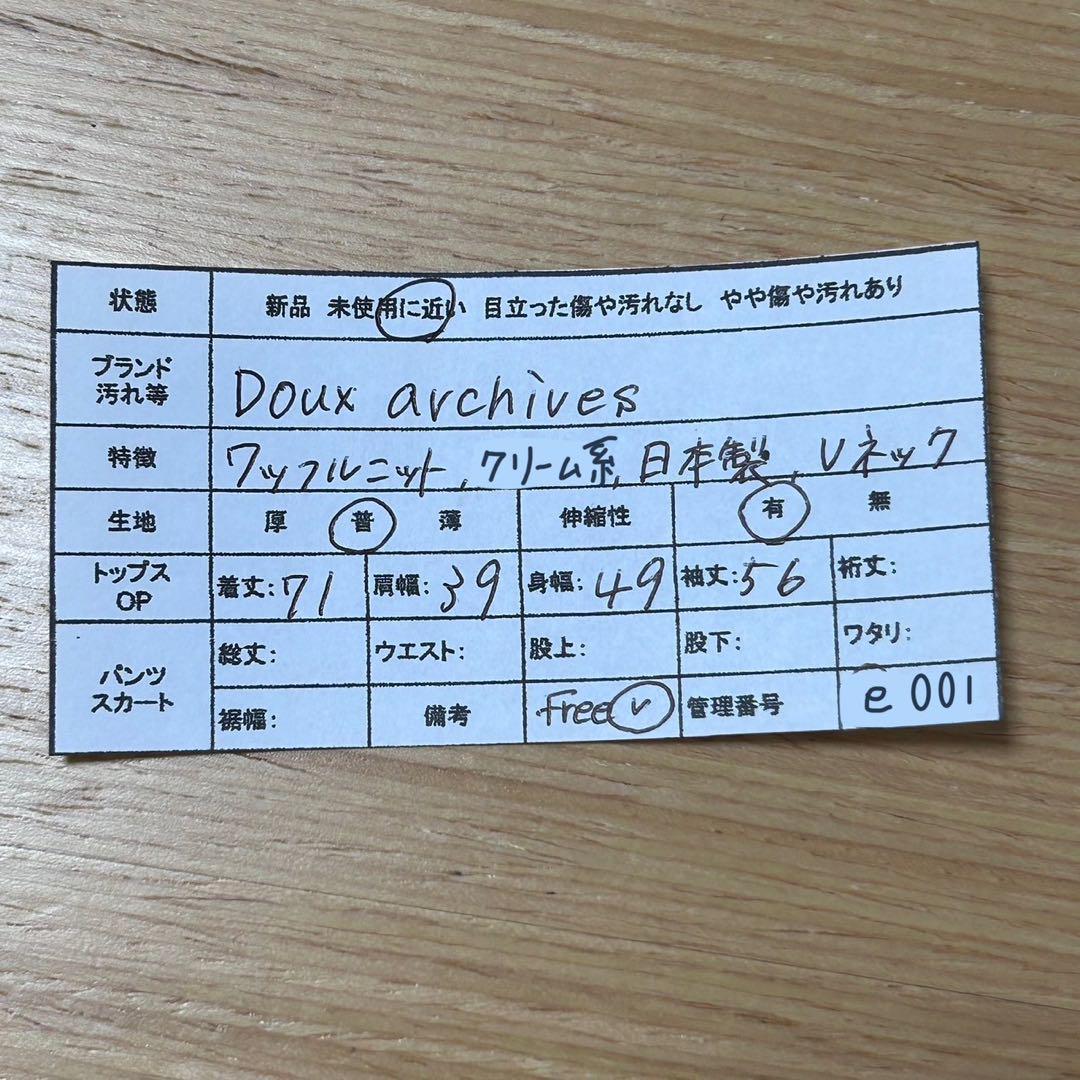 状態 新品 未使用に近い 目立った傷や汚れなし やや傷や汚れあり
ブランド
汚れ等 Doux archives
特徴 ワッフルニット, クリーム系, 日本製, Vネック
生地 厚 普 薄 伸縮性 有 無
トップス
OP 着丈:71 肩幅:39 身幅:49 袖丈:56 裄丈:
パンツ
スカート 総丈: ウエスト: 股上: 股下: ワタリ:
裾幅: 備考 Free✓ 管理番号 e 001